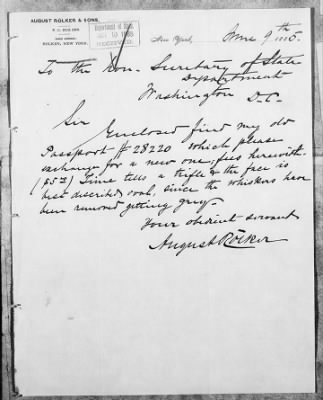 AUGUST RÖLKER & SONS,
NEW YORK.
New York, June 9th
To the Hon. Secretary of State
Department
Washington D.C.
Sir
Enclosed find my old
Passport # 28220 which please
exchange for a new one; fees herewith.
Time tells a trifle & the face is
best described oval, since the whiskers have
been removed getting grey.
Your obedient servant
August Rölker